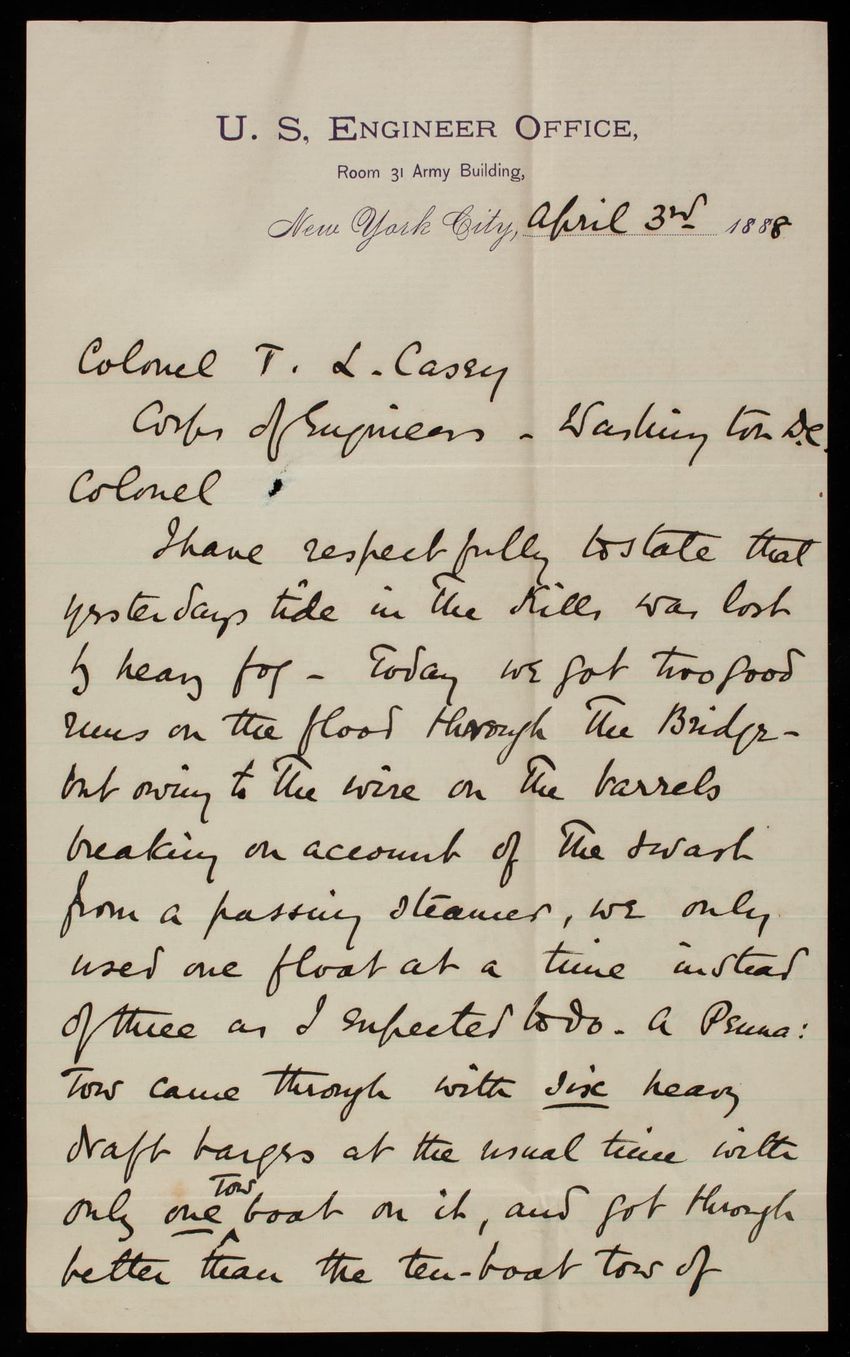 U. S. ENGINEER OFFICE,
Room 31 Army Building,
New York City, April 3rd 1888
Colonel T. L. Casey
Corps of Engineers - Washington D.C.
Colonel
I have respectfully to state that
yesterdays tide in the Kills was lost
by heavy fog - Today we got two good
runs on the flood through the Bridge -
but owing to the wire on the barrels
breaking on account of the swash
from a passing steamer, we only
used one float at a time instead
of three as I expected to do. A Penna:
tow came through with six heavy
draft barges at the usual time with
only one tow boat on it, and got through
better than the ten-boat tow of